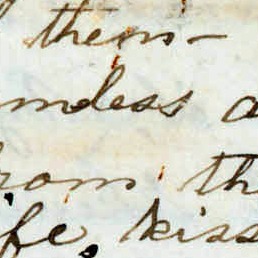 them-
mless a
rom th
ife, kiss